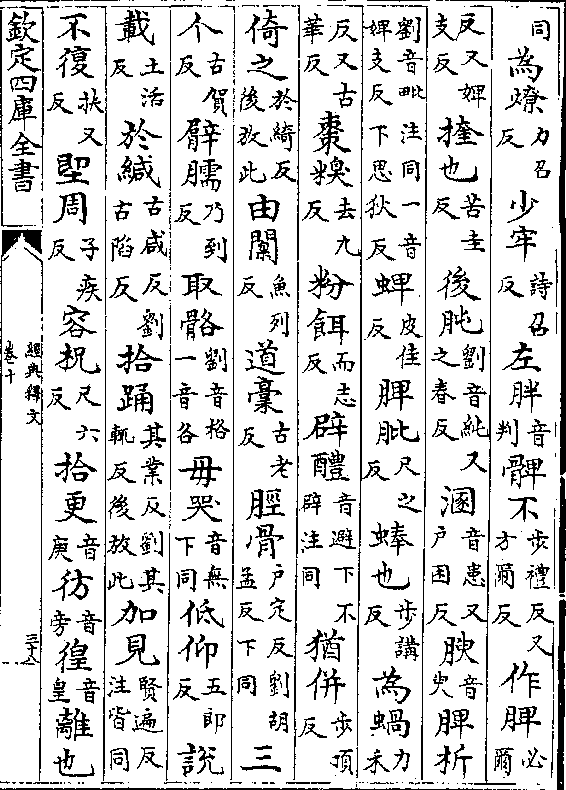 同為燎力召反少牢詩召反左胖音判髀不步禮反又方爾反作脾必爾
反又婢支反也苦圭反後肫劉音純又之春反溷音患又戶困反腴音臾脾析
劉音毗注同一音婢支反下思狄反蜱皮佳反脾肶尺之反蜯也步講反為蝸力禾
反又古華反棗糗去九反粉餌而志反辟醴音避下不辟注同猶併步頂反
倚之於綺反後放此由闑魚列反道稾古老反脛骨戶定反劉胡孟反下同三
个古賀反臂臑乃到反取骼劉音格一音各毋哭音無下同低仰五郎反說
載土活反於緘古咸反劉古陷反拾踊其業反劉其輒反後放此加見賢遍反注皆同
不復扶又反堲周子疾反容柷尺六反拾更音庚彷音旁徨音皇離也
欽定四庫全書
經典釋文
卷十